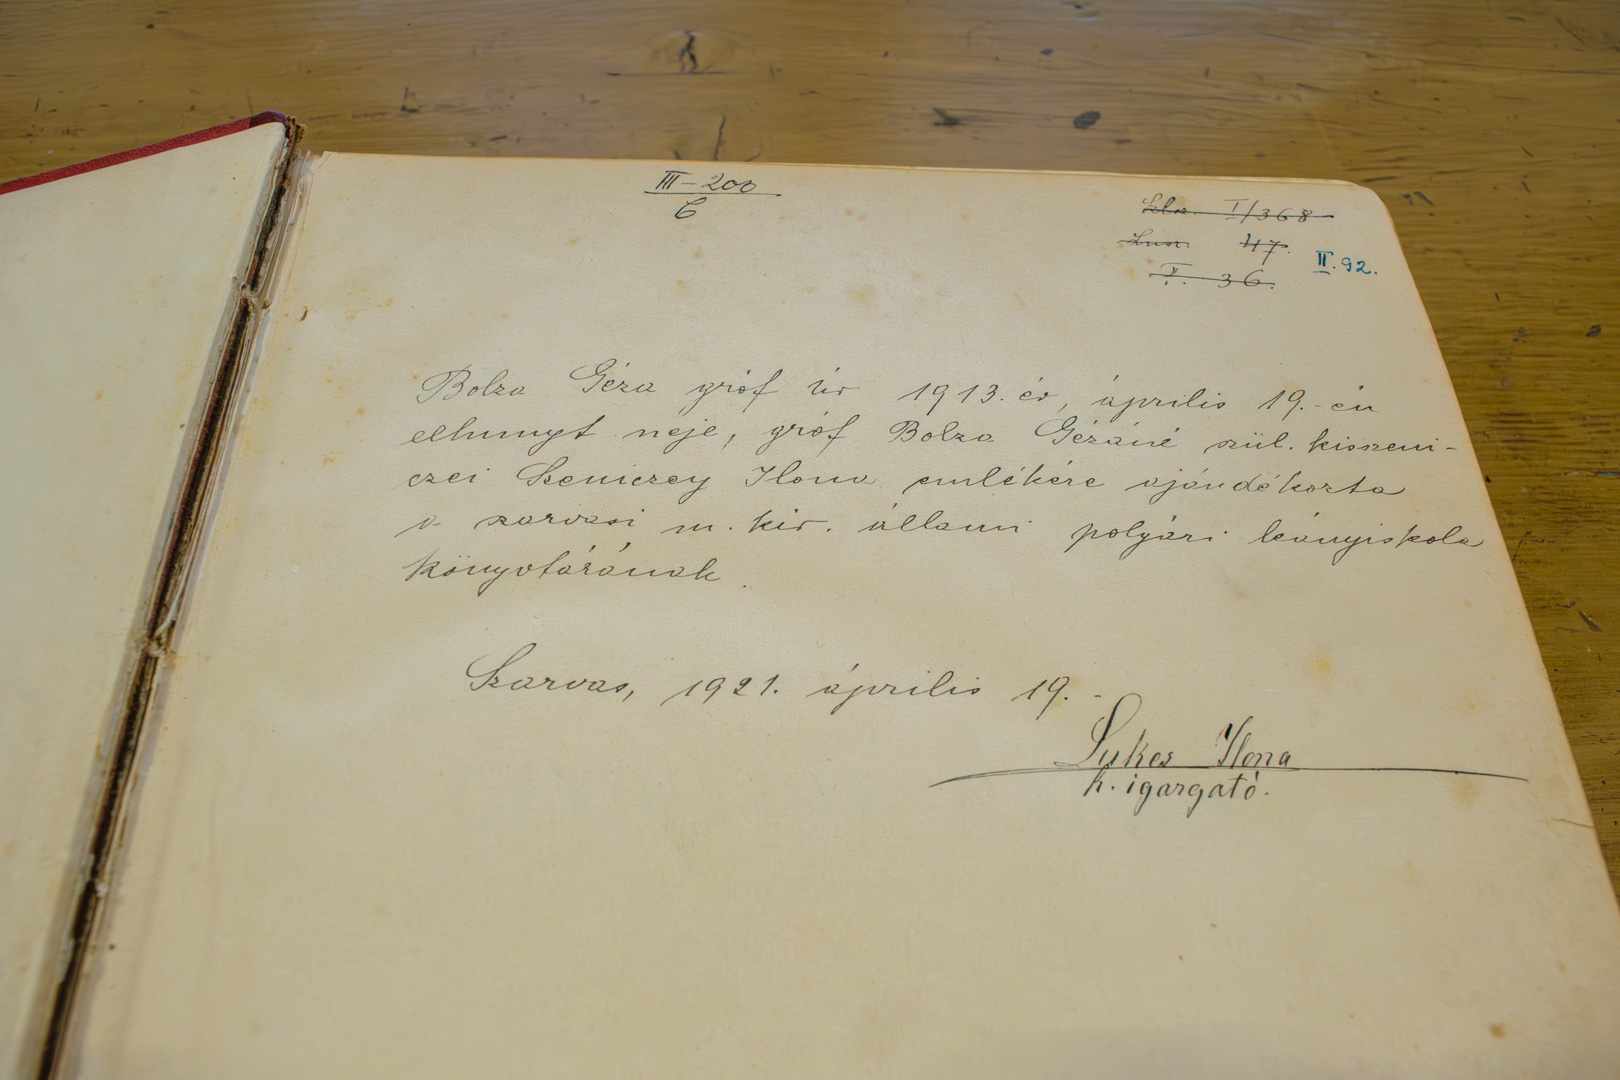 III-200
C
I/368
47.
I. 36.
II. 92.
Bolza Géza gróf úr 1913. év, április 19.-én
elhunyt neje, gróf Bolza Gézáné szül. kiszeni-
czei Szeniczey Ilona emlékére ajándékozta
a szarvasi m. kir. állami polgári leányiskola
könyvtárának.
Szarvas, 1921. április 19.-
Lukes Ilona
h. igazgató.